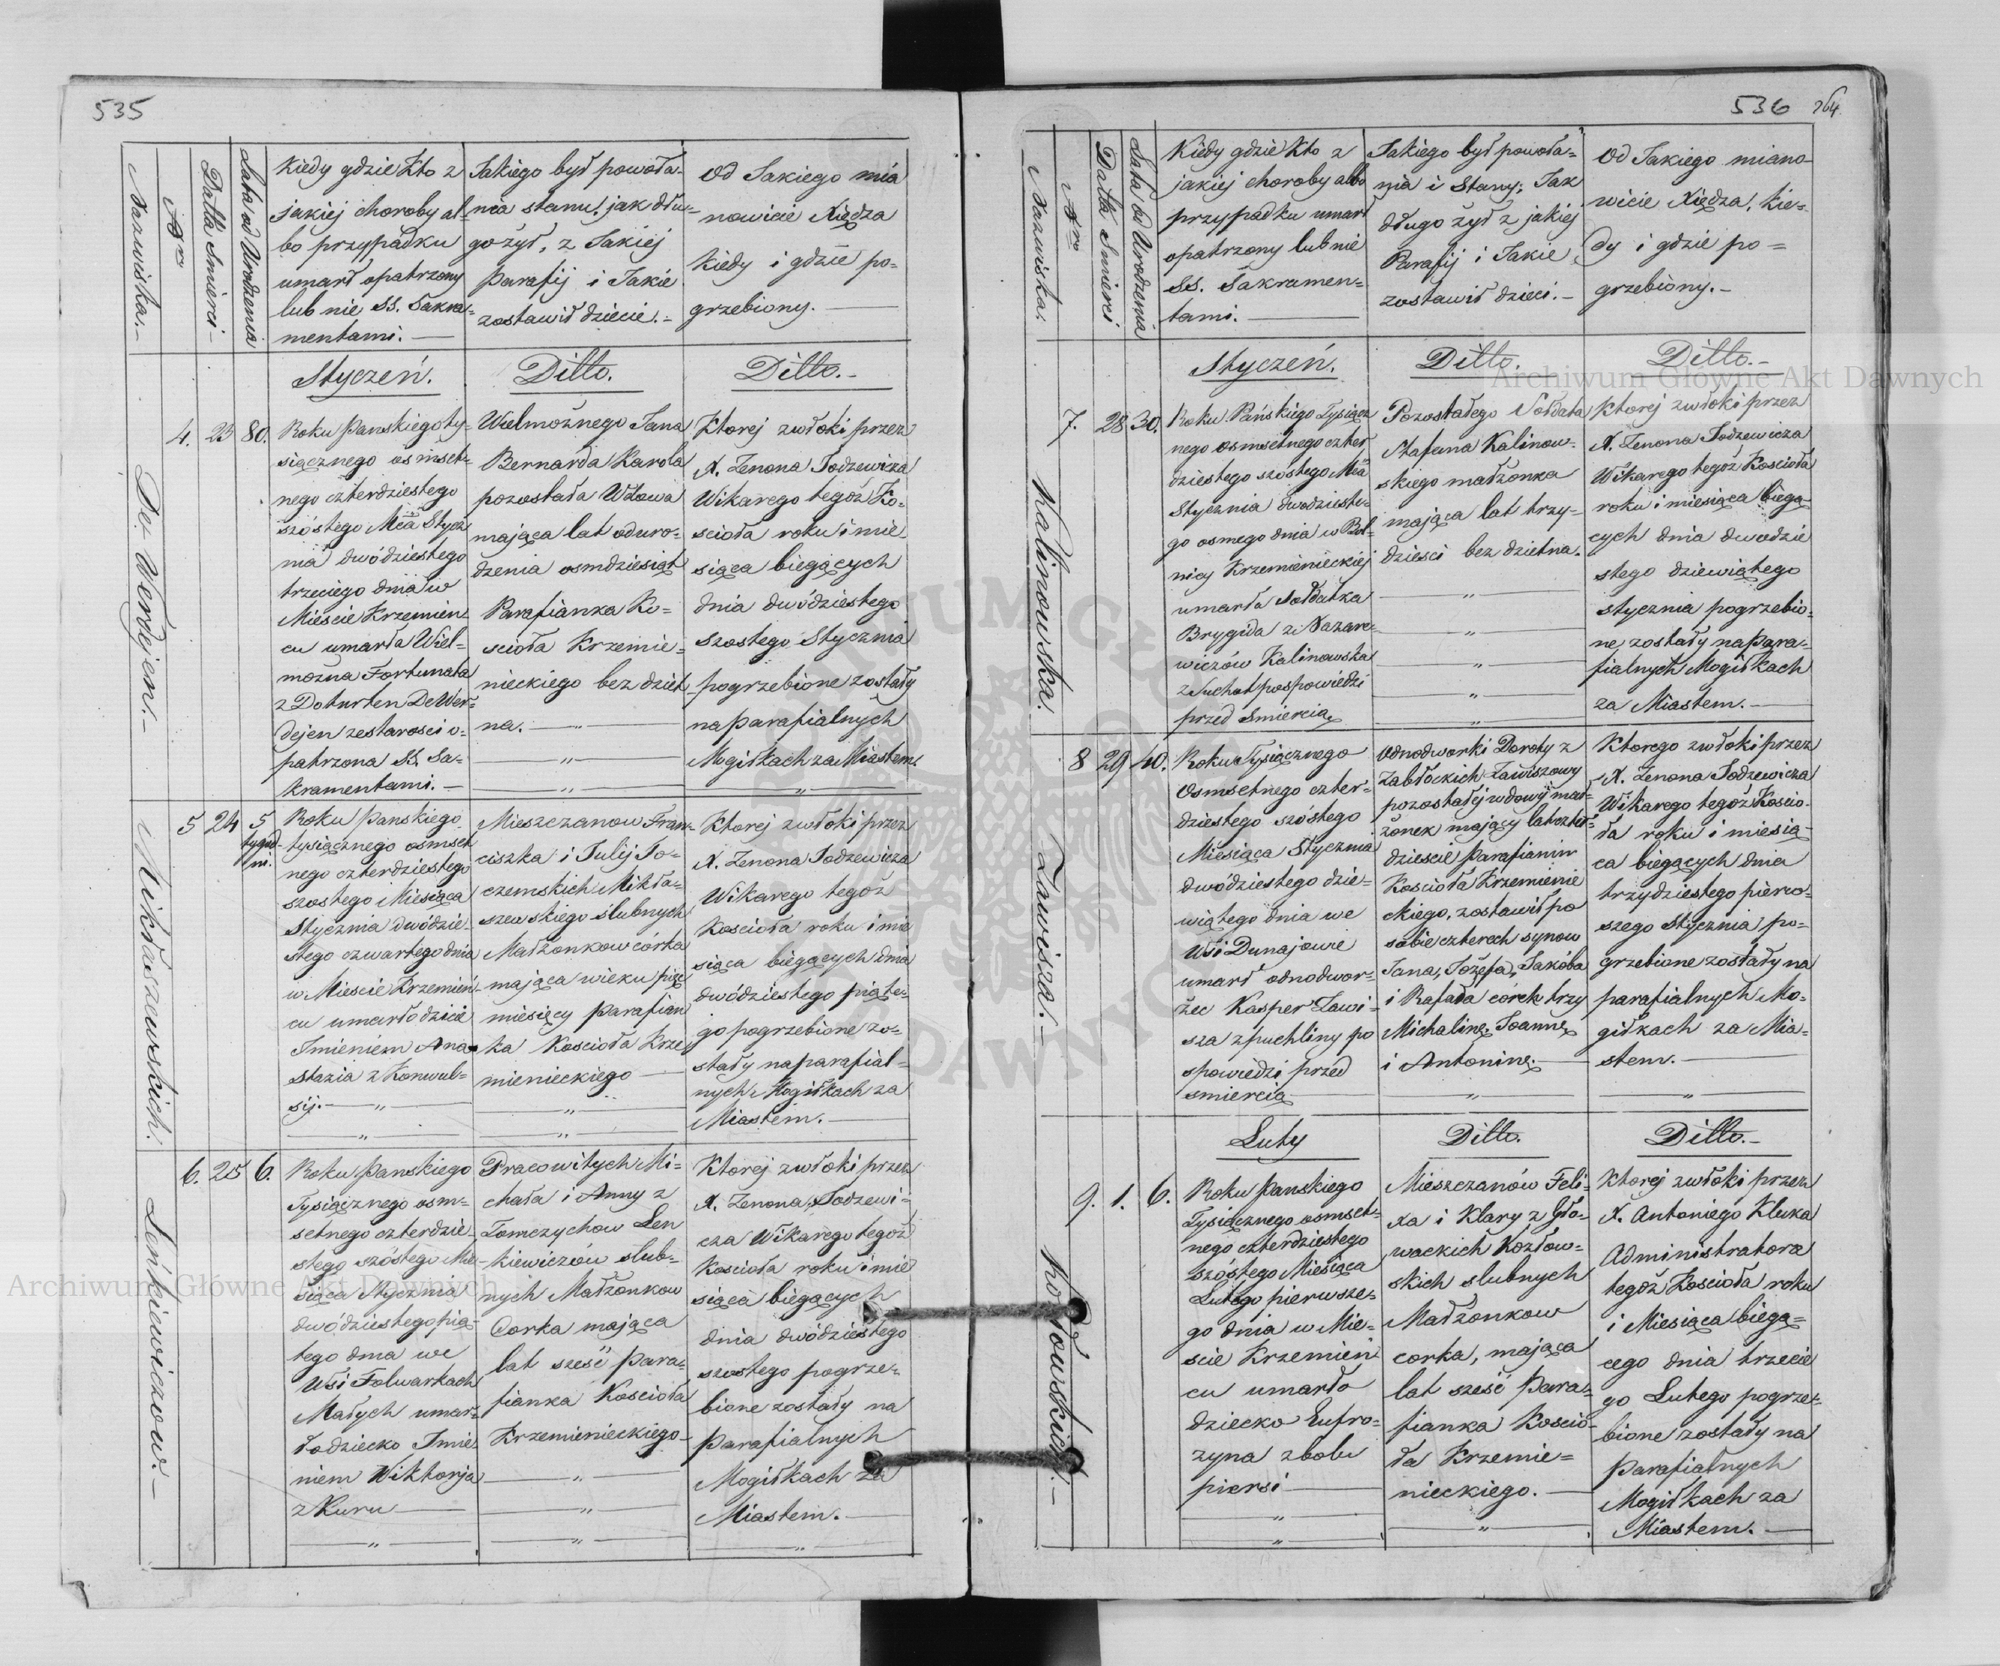 535
Nazwiska.
Nro
Datta Smierci
Lata od Urodzenia
Kiedy gdzie Kto z
jakiej choroby al-
bo przypadku
umarł opatrzony
lub nie SS. Sakra-
mentami.
Jakiego był powoła-
nia stanu, jak dłu-
go żył, z Jakiej
Parafij i Jakie
zostawił dziecie.
Od Jakiego mia
nowicie Xiędza
Kiedy i gdzie po-
grzebiony.
Styczeń.
Ditto.
Ditto.
De Werdejen.
4. 23 80.
Roku Panskiego ty-
siącznego osmset-
nego czterdziestego
szóstego Mca Stycz
nia dwódziestego
trzeciego dnia w
Mieście Krzemień
cu umarła Wiel-
można Fortunata
z Doturten De Wer-
dejen ze starosci o-
patrzona SS. Sa-
kramentami.
Wielmożnego Jana
Bernarda Karola
pozostała Wdowa
mająca lat od uro-
dzenia osmdziesiąt
Parafianka Ko-
scioła Krzemie-
nieckiego bez dziet
na.
Ktorej zwłoki przez
X. Zenona Jodzewicza
Wikarego tegoż Ko-
scioła roku i mie-
siąca biegących
dnia dwódziestego
szostego Stycznia
pogrzebione zostały
na parafialnych
Mogiłkach za Miastem
Mikłaszewskich.
5 24 5
tygod-
ni.
Roku Panskiego
tysiącznego osmset
nego czterdziestego
szostego Miesiąca
Stycznia dwódzie-
stego czwartego dnia
w Mieście Krzemień-
cu umarło dziecie
Imieniem Ana-
stazia z Konwul-
sij.
Mieszczanow Fran-
ciszka i Julij Jo-
czemskich Mikła-
szewskiego slubnych
Małżonkow córka
mająca wieku pięć
miesięcy parafian
ka Kościoła Krze-
mienieckiego
Ktorej zwłoki przez
X. Zenona Jodzewicza
Wikarego tegoż
Kościoła roku i mie
siąca biegących dnia
dwódziestego piąte-
go pogrzebione zo-
stały na parafial-
nych Mogiłkach za
Miastem.
Leńkiewiczow.
6. 25 6.
Roku Panskiego
Tysiącznego osm-
setnego czterdzie-
stego szóstego Mie-
siąca Stycznia
dwódziestego pią-
tego dnia we
Wsi Folwarkach
Małych umar-
ło dziecko Imie-
niem Wiktorja
z Kuru
Pracowitych Mi-
chała i Anny z
Tomczychow Len
kiewiczow slub-
nych Małżonkow
Corka mająca
lat sześć para-
fianka Kościoła
Krzemienieckiego
Ktorej zwłoki przez
X. Zenona Jodzewi-
cza Wikarego tegoż
Kościoła roku i mie
siąca biegących
dnia dwódziestego
szostego pogrze-
bione zostały na
Parafialnych
Mogiłkach za
Miastem.
536 264.
Nazwiska.
Nro
Datta Smierci
Lata od Urodzenia
Kiedy gdzie Kto z
jakiej choroby albo
przypadku umarł
opatrzony lub nie
SS. Sakramen-
tami.
Jakiego był powoła-
nia i Stanu, Jak
długo żył z jakiej
Parafij i Jakie
zostawił dzieci.
Od Jakiego miano-
wicie Xiędza, Kie-
dy i gdzie po-
grzebiony.
Styczeń.
Ditto.
Ditto.
Kalinowska.
7. 28 30.
Roku Pańskiego Tysiącz
nego osmsetnego czter
dziestego szóstego Mca
Stycznia dwodzieste-
go osmego dnia w Bol-
nicy Krzemienieckiej
umarła Sołdatka
Brygida z Nazare-
wiczów Kalinowska
z Suchot po spowiedzi
przed Smiercią
Pozostałego Sołdata
Stefana Kalinow-
skiego małżonka
mająca lat trzy-
dziesci bez dzietna.
Ktorej zwłoki przez
X. Zenona Jodzewicza
Wikarego tegoż Kościoła
roku i miesiąca biegą-
cych dnia dwodzie
stego dziewiątego
stycznia pogrzebio-
ne zostały na Para-
fialnych Mogiłkach
za Miastem.
Zawisza.
8 29 40.
Roku Tysiącznego
Osmsetnego czter-
dziestego szóstego
Miesiąca Stycznia
dwódziestego dzie-
wiątego dnia we
Wsi Dunajowie
umarł odnodwor-
żec Kasper Zawi-
sza z puchliny po
spowiedzi przed
smiercią
Odnodworki Doroty z
Zabłockich Zawiszowy
pozostałej wdowij mał-
żonek mający lat czter-
dzieście parafianin
Kościoła Krzemienie
ckiego, zostawił po
sobie czterech synow
Jana, Józefa, Jakóba
i Rafała córek trzy
Michalinę, Joannę
i Antoninę.
Ktorego zwłoki przez
X. Zenona Jodzewicza
Wikarego tegoż Koscio-
ła roku i miesią-
ca biegących dnia
trzydziestego pierw-
szego Stycznia po-
grzebione zostały na
parafialnych Mo-
giłkach za Mia-
stem.
Luty
Ditto.
Ditto.
9. 1. 6.
Roku Panskiego
Tysiącznego osmset-
nego czterdziestego
szóstego Miesiąca
Lutego pierwsze-
go dnia w Mie-
scie Krzemień
cu umarło
dziecko Eufro-
zyna z bolu
piersi
Mieszczanów Feli-
xa i Klary z Gło-
wackich Kozłow-
skich slubnych
Małżonkow
corka, mająca
lat sześć Para-
fianka Koscio-
ła Krzemie-
nieckiego.
Ktorej zwłoki przez
X. Antoniego Kluka
Administratora
tegoż Kościoła roku
i Miesiąca biegą-
cego dnia trzecie
go Lutego pogrze-
bione zostały na
Parafialnych
Mogiłkach za
Miastem.
Archiwum Główne Akt Dawnych
Archiwum Główne Akt Dawnych